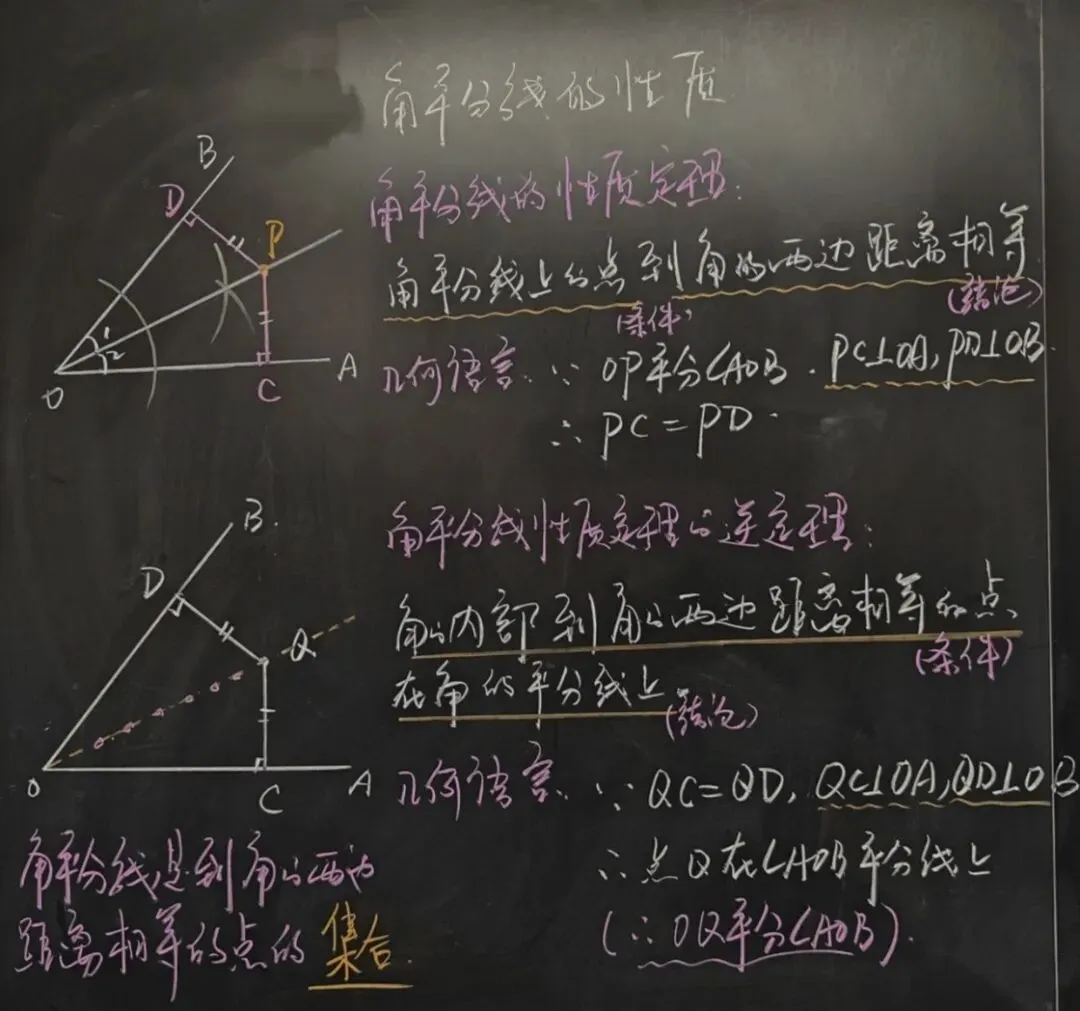 角平分线的性质
角平分线的性质定理:
角平分线上的点到角的两边距离相等
(条件)
(结论)
几何语言: ∵ OP平分∠AOB. PC⊥OA,PD⊥OB.
∴ PC=PD.
B
D
P
1
2
O
C
A
角平分线性质定理的逆定理:
角的内部到角的两边距离相等的点
(条件)
在角的平分线上
(结论)
几何语言: ∵ QC=QD, QC⊥OA,QD⊥OB
∴点Q在∠AOB平分线上
(∴OQ平分∠AOB).
B.
D
Q
O
C
A
角平分线是到角的两边
距离相等的点的 集合.